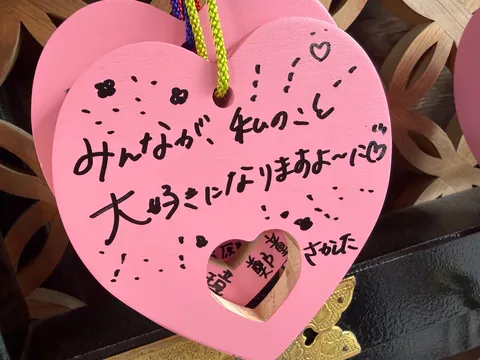 みんなが、私のこと
大好きになりますよ〜に♡
さかした